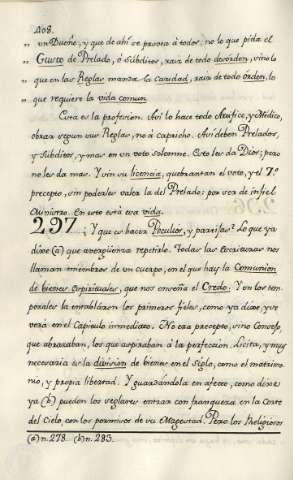 408.
" un Dueño, y que de ahí se provea à todos, no lo que pida el
" Gusto de Prelado, ó Subditos, raiz de todo desorden, sino lo
" que en las Reglas manda la caridad, raiz de todo orden, lo
" que requiere la vida comun.
Esta es la profesion. Asi lo hace todo Artifice, y Médico,
obrar segun sus Reglas, no à capricho. Asi deben Prelados,
y Subditos, y mas en un voto solemne. Esto les da Dios; pero
no les da mas. Y sin su licencia, quebrantan el voto, y el 7º
precepto, sin poderles valer la del Prelado: por ser de infiel
Ministro. En este está esa vida.
297. ¿Y que es hacer Peculios, y paraisos? Lo que ya
dixe (a) que avergüenza repetirlo. Todas las Escrituras nos
llaman miembros de un cuerpo, en el que hay la Comunion
de bienes espirituales, que nos enseña el Credo. Y en los tem-
porales la entablaron los primeros fieles, como ya dixe, y se
verá en el Capitulo inmediato. No era precepto, sino Consejo,
que abrazaban, los que aspiraban à la perfeccion. Licita, y muy
necesaria es la division de bienes en el siglo, como el matrimo-
nio, y propia libertad. Y guardandola en afecto, como dixe
ya (b) pueden los seglares entrar con franqueza en la Corte
del Cielo, con los permisos de su Magestad. Pero los Religiosos
(a) n. 278. (b) n. 283.